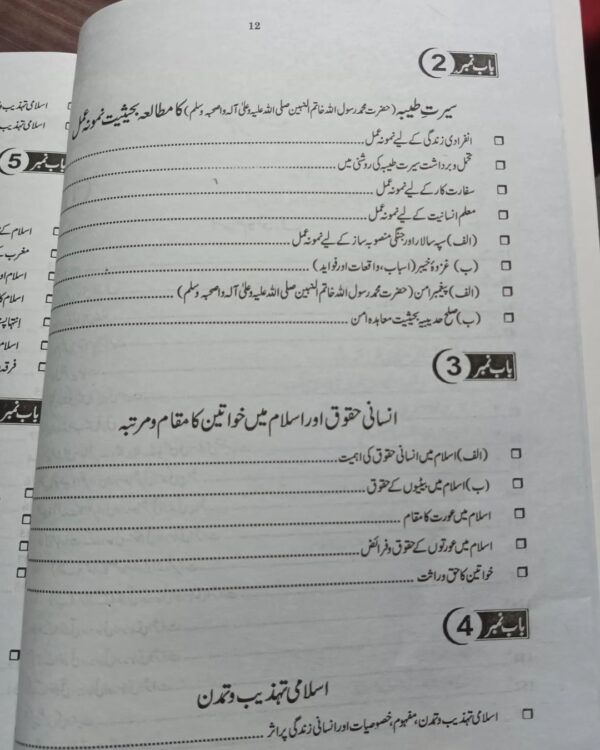 12
باب نمبر 2
سیرتِ طیبہ (حضرت محمد رسول اللہ خاتم النبیین صلی اللہ علیہ وعلیٰ آلہ واصحبہ وسلم) کا مطالعہ بحیثیت نمونہ عمل
انفرادی زندگی کے لیے نمونہ عمل
تحمل و برداشت سیرت طیبہ کی روشنی میں
سفارت کار کے لیے نمونہ عمل
معلم انسانیت کے لیے نمونہ عمل
(الف) سپہ سالار اور جنگی منصوبہ ساز کے لیے نمونہ عمل
(ب) غزوۂ خیبر (اسباب، واقعات اور فوائد)
(الف) پیغمبر امن (حضرت محمد رسول اللہ خاتم النبیین صلی اللہ علیہ وعلیٰ آلہ واصحبہ وسلم)
(ب) صلح حدیبیہ بحیثیت معاہدہ امن
باب نمبر 3
انسانی حقوق اور اسلام میں خواتین کا مقام و مرتبہ
(الف) اسلام میں انسانی حقوق کی اہمیت
(ب) اسلام میں بیٹیوں کے حقوق
اسلام میں عورت کا مقام
اسلام میں عورتوں کے حقوق و فرائض
خواتین کا حق وراثت
باب نمبر 4
اسلامی تہذیب و تمدن
اسلامی تہذیب و تمدن، مفہوم، خصوصیات اور انسانی زندگی پر اثر
اسلامی تہذیب
اسلامی تہذیب
باب نمبر 5
اسلام کے
مغرب کے
اسلام او
اسلام کا
انتہا پسن
اسلام
فرقہ
باب نمبر